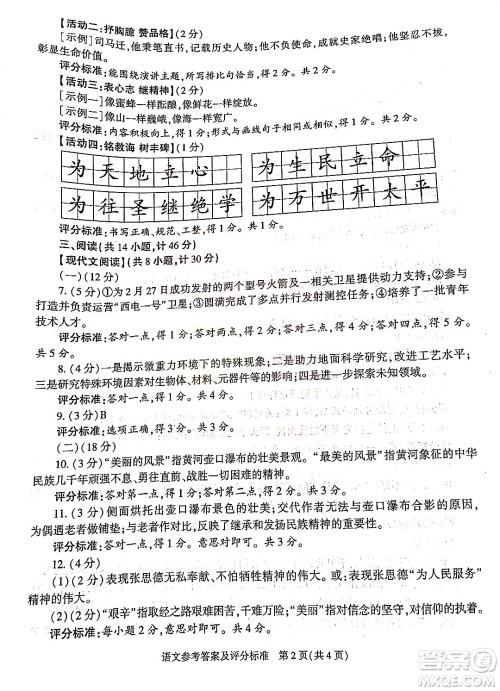 【活动二：抒胸臆 赞品格】(2 分)
[示例] 司马迁，他秉笔直书，记载历史人物；他不畏强权，成就史家绝唱；他身残志坚，
彰显生命价值。
评分标准：能围绕演讲主题，所写排比句恰当，得 2 分。
【活动三：表心志 继精神】(2 分)
[示例一] 像蜜蜂一样酝酿，像鲜花一样绽放。
[示例二] 像山一样巍峨，像海一样宽广。
评分标准：内容积极向上，得 1 分；形式与画线句一致，得 1 分。共 2 分。
【活动四：铭教诲 树丰碑】(1 分)
为天地立心 为生民立命
为往圣继绝学 为万世开太平
评分标准：书写正确、规范、美观，得 1 分。
三、阅读(共 14 小题，计 46 分)
【现代文阅读】(共 8 小题，计 30 分)
(一)(12 分)
7. (5 分)①为 2 月 27 日成功发射的两个型号火箭及一相关卫星提供动力支持。②参与
打造并负责运营“西电一号”卫星；③圆满完成了多点并行发射测控任务；④培养了一批青年
技术人才。
评分标准：答对一点，得 1 分；答对两点，得 2 分；答对三点，得 4 分；答对四点，得 5 分。
共 5 分。
8. (4 分)一是揭示微重力环境下的特殊现象；二是助力地面科学研究，改进工艺水平；
三是研究特殊环境因素对生物体、材料、元器件等的影响；四是进一步探索未知领域。
评分标准：答对一点，得 1 分。共 4 分。
9. (3 分)B
评分标准：答对，得 3 分。
(二)(18 分)
10. (2 分)“美丽的风景”指黄河壶口瀑布的壮美景观。“最美的风景”指黄河象征的中华
民族几千年历尽艰辛、饱受磨难，却一往无前、战胜一切困难的精神。
评分标准：答对一点，得 1 分。意思对即可。共 2 分。
11. (4 分)侧面烘托出壶口瀑布景色的壮美；交代作者无法与壶口瀑布合影的原因，
为偶遇老者做铺垫；与老者作对比，反映了继承和发扬民族精神的重要性。
评分标准：答对一点，得 1 分。意思对即可。共 4 分。
12. (4 分)(1)(2 分)表现张思德无私奉献、不怕牺牲精神的伟大。或：表现张思德“为人民服务”
精神的伟大。
(2)(2 分)“艰辛”指取经之路艰难困苦，千难万险；“美丽”指坚持不懈，一往无前的精神。
评分标准：每小题 2 分，意思对即可。共 4 分。
语文参考答案及评分标准 第 2 页(共 4 页)